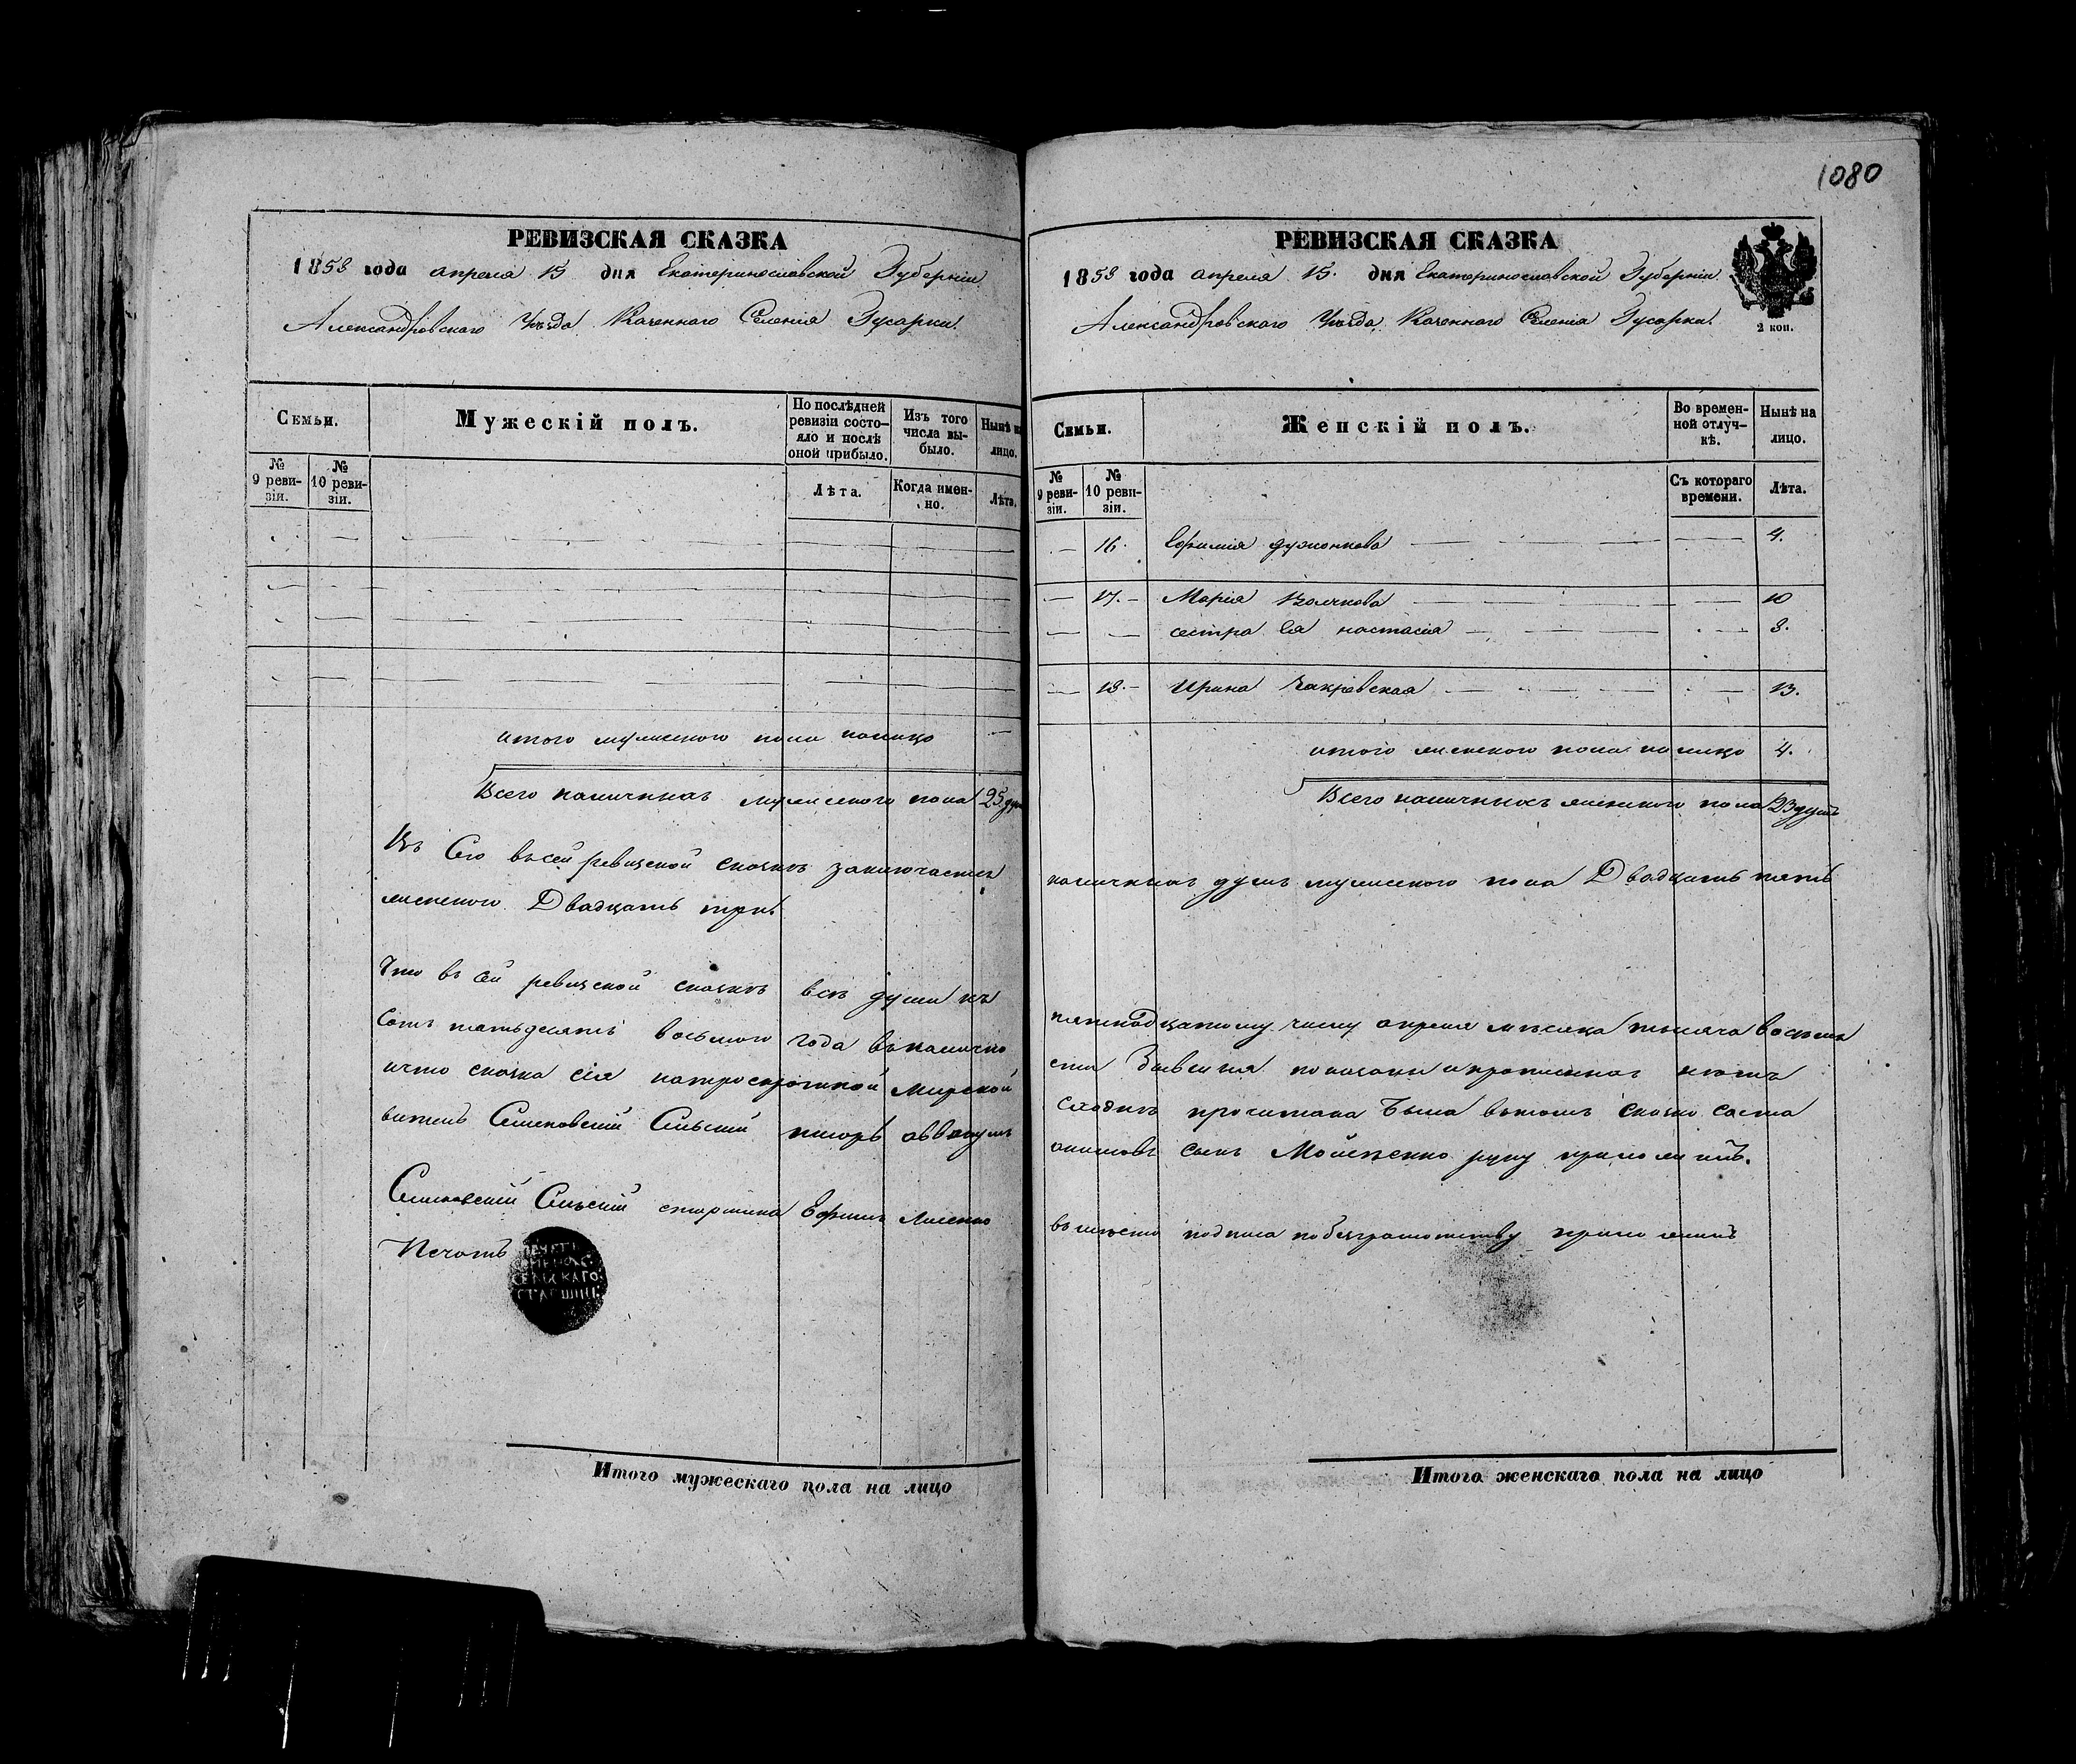 1080
РЕВИЗСКАЯ СКАЗКА
1858 года апреля 15 дня Екатеринославской Губерніи
Александровскаго Уѣзда Казеннаго Селенія Гусарки.
Семьи.
Мужескій полъ.
По послѣдней ревизіи состояло и послѣ оной прибыло.
Изъ того числа выбыло.
Нынѣ на лицо.
№ 9 ревизіи.
№ 10 ревизіи.
Лѣта.
Когда именно.
Лѣта.
итого мужеского пола налицо —
Всего наличныхъ мужеского пола 25 душ
сей ревизской сказкѣ заключается
женского Двадцать три
Что въ сей ревизской сказкѣ всѣ души къ
сотъ пятьдесятъ восьмого года въ налично
ичто сказка сія на Мирской
витель Сельский писарь
Сельский старшина Ефим Лисенко
Печать
СЕЛЬСКАГО
СТАРШИНЫ
Итого мужескаго пола на лицо
РЕВИЗСКАЯ СКАЗКА
1858 года апреля 15. дня Екатеринославской Губерніи
Александровскаго Уѣзда Казеннаго Селенія Гусарки.
2 коп.
Семьи.
Женскій полъ.
Во временной отлучкѣ.
Нынѣ на лицо.
№ 9 ревизіи.
№ 10 ревизіи.
Съ котораго времени.
Лѣта.
— 16. Ефимія — 4.
— 17. — Марія Волчкова — 10
— — сестра Ея настасія — 8.
— 18. — Ирина — 13.
итого женского пола налицо 4.
Всего наличныхъ женского пола 23 душъ
наличныхъ душъ мужеского пола Двадцать пять
пятнадцатому числу апреля мѣсяца тысяча восемь
сти показаны
сходкѣ прочитана была въ томъ сказко соста
сынъ Мойсѣенко руку приложилъ.
вмѣсто подписа по безграмотству приложилъ
Итого женскаго пола на лицо